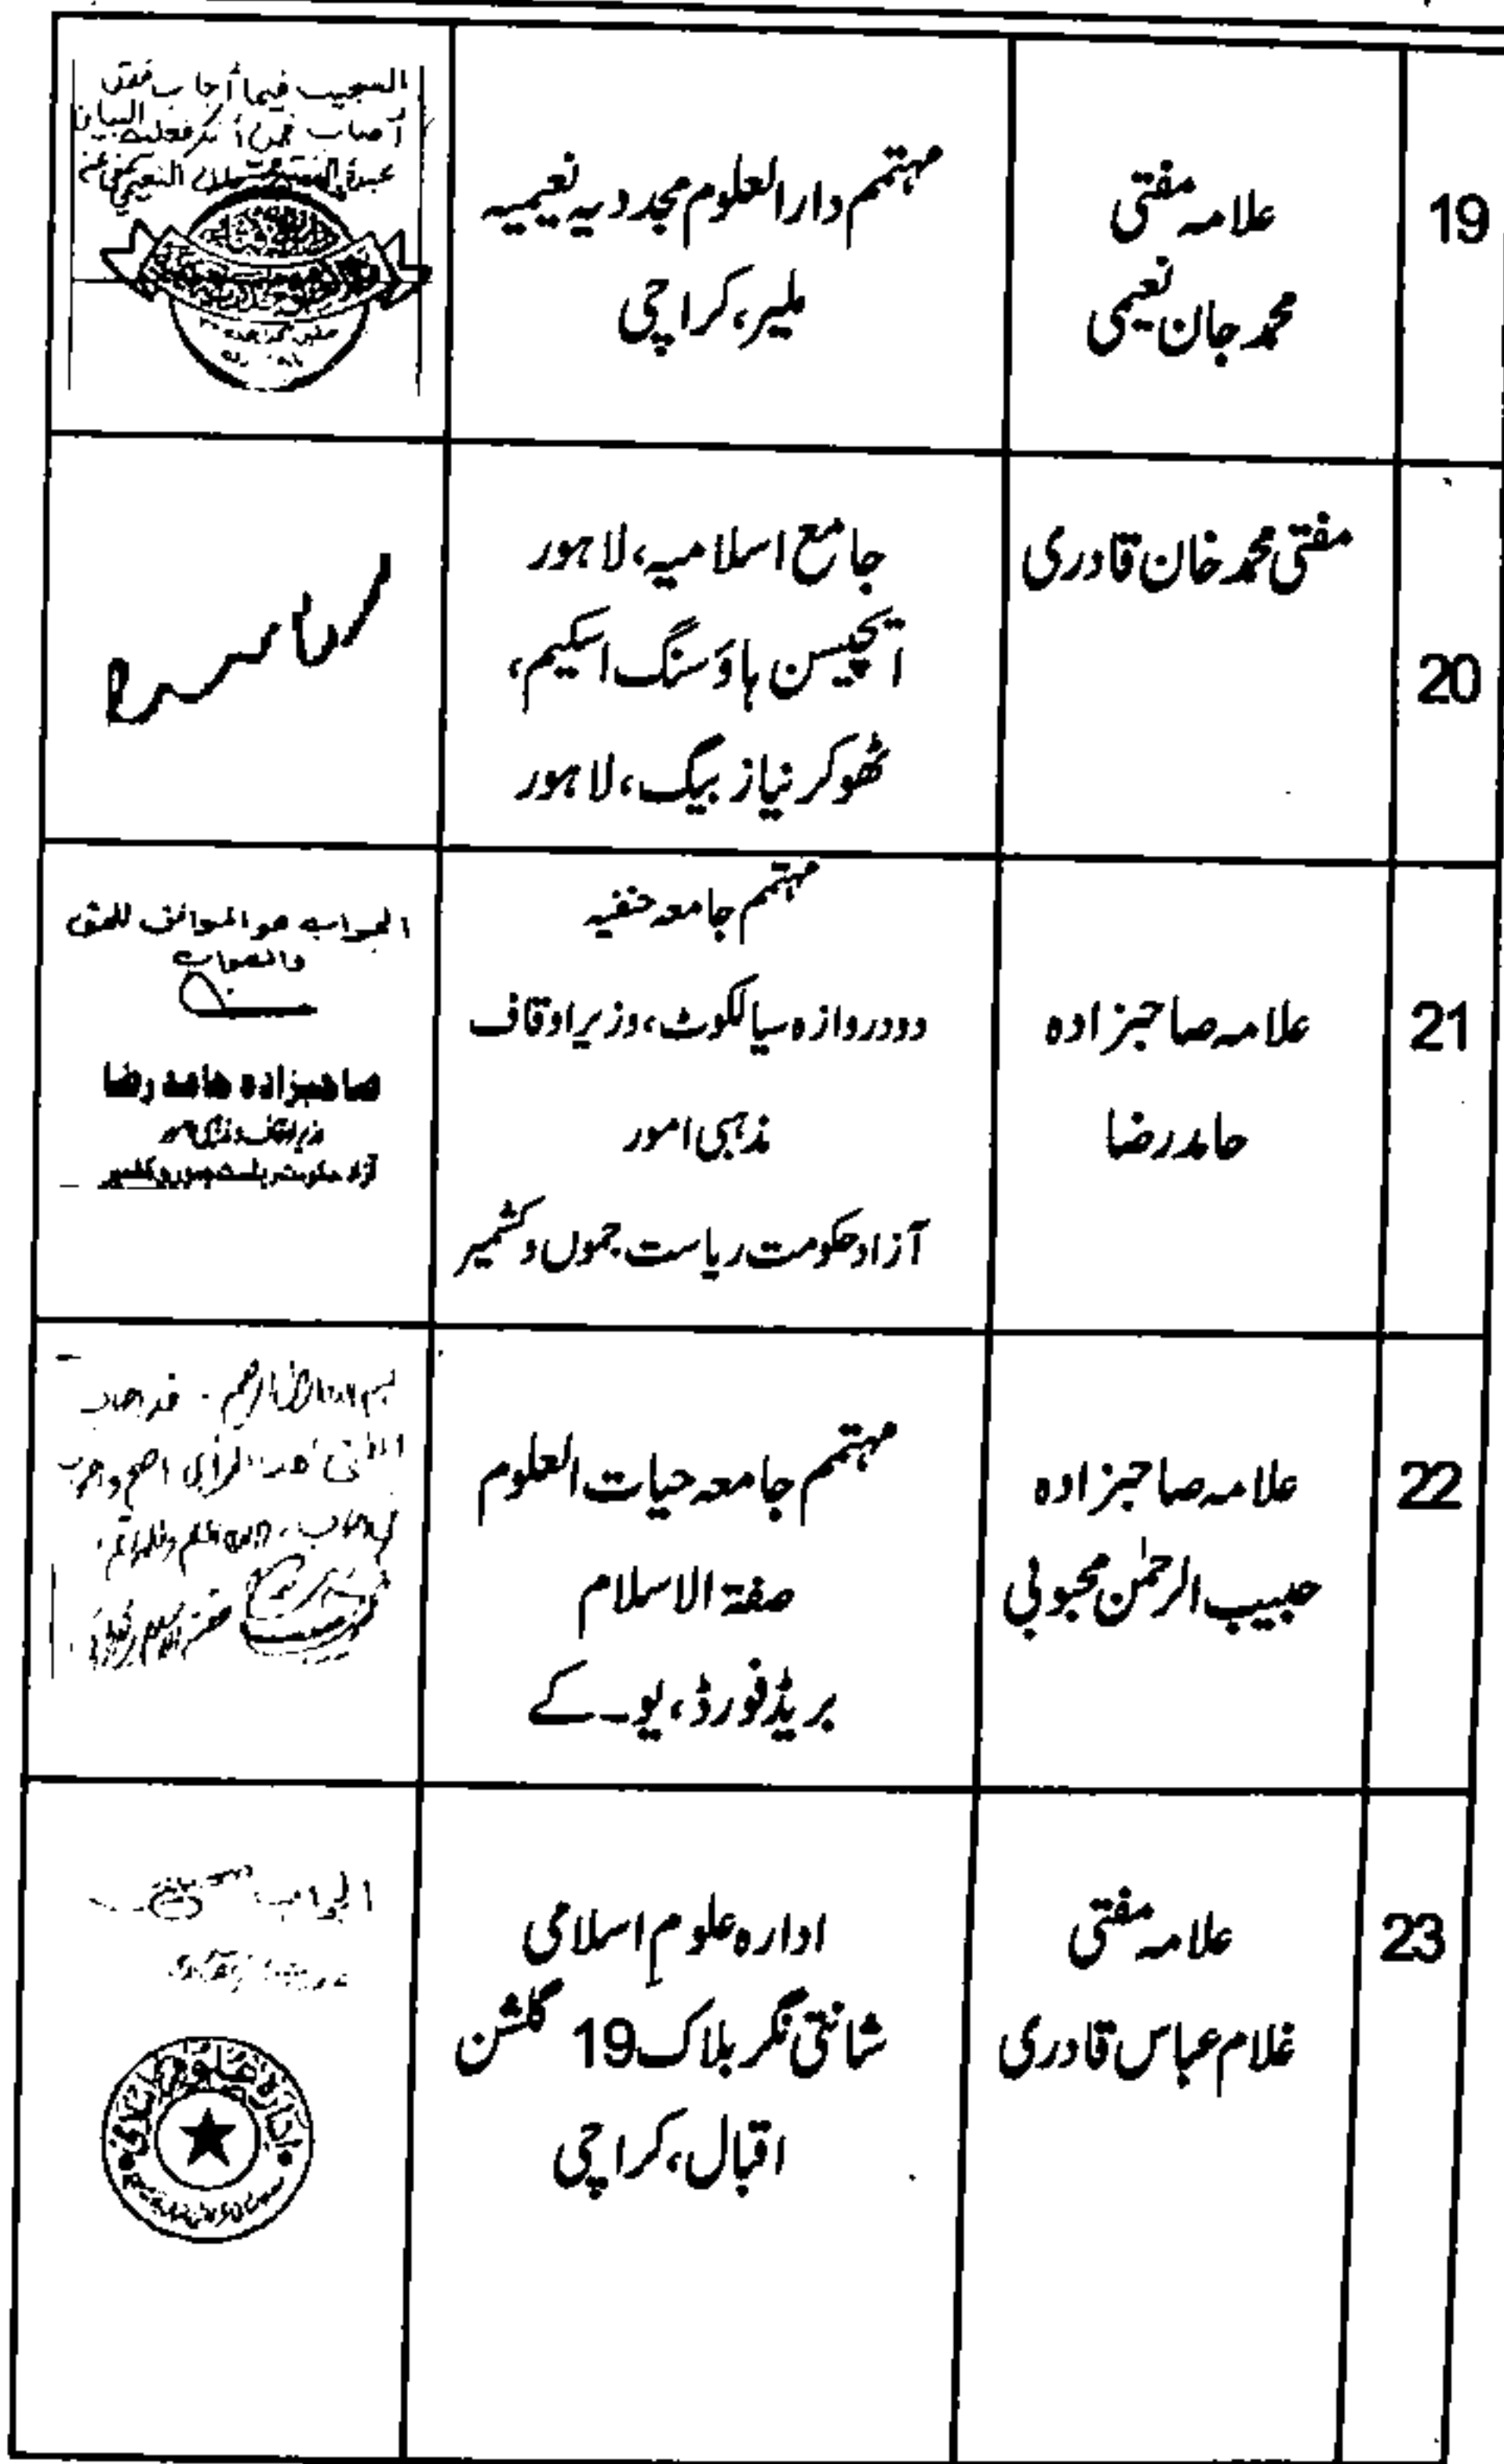 19
علامہ مفتی
محمد جان نعیمی
مہتمم دارالعلوم مجددیہ نعیمیہ
ملیر، کراچی
المجیب فیما أجاب فقد
أصاب
20
مفتی محمد خان قادری
جامع اسلامیہ، لاہور
ایچیسن ہاؤسنگ اسکیم،
ٹھوکر نیاز بیگ، لاہور
21
علامہ صاحبزادہ
حامد رضا
مہتمم جامعہ حنفیہ
دودروازہ سیالکوٹ، وزیر اوقاف
مذہبی امور
آزاد حکومت ریاست جموں و کشمیر
الجواب هو الموافق للحق
والصواب
صاحبزادہ حامد رضا
وزیر اوقاف و مذہبی امور
آزاد حکومت ریاست جموں و کشمیر
22
علامہ صاحبزادہ
حبیب الرحمٰن محبوبی
مہتمم جامعہ حیات العلوم
صفۃ الاسلام
بریڈفورڈ، یو۔کے
23
علامہ مفتی
غلام عباس قادری
ادارہ علوم اسلامی
شانتی نگر بلاک 19 گلشن
اقبال، کراچی
الجواب صحیح